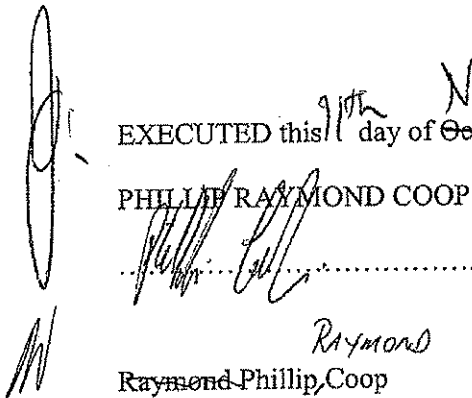 EXECUTED this 11th day of
PHILLIP RAYMOND COOP
RAYMOND
Raymond Phillip, Coop